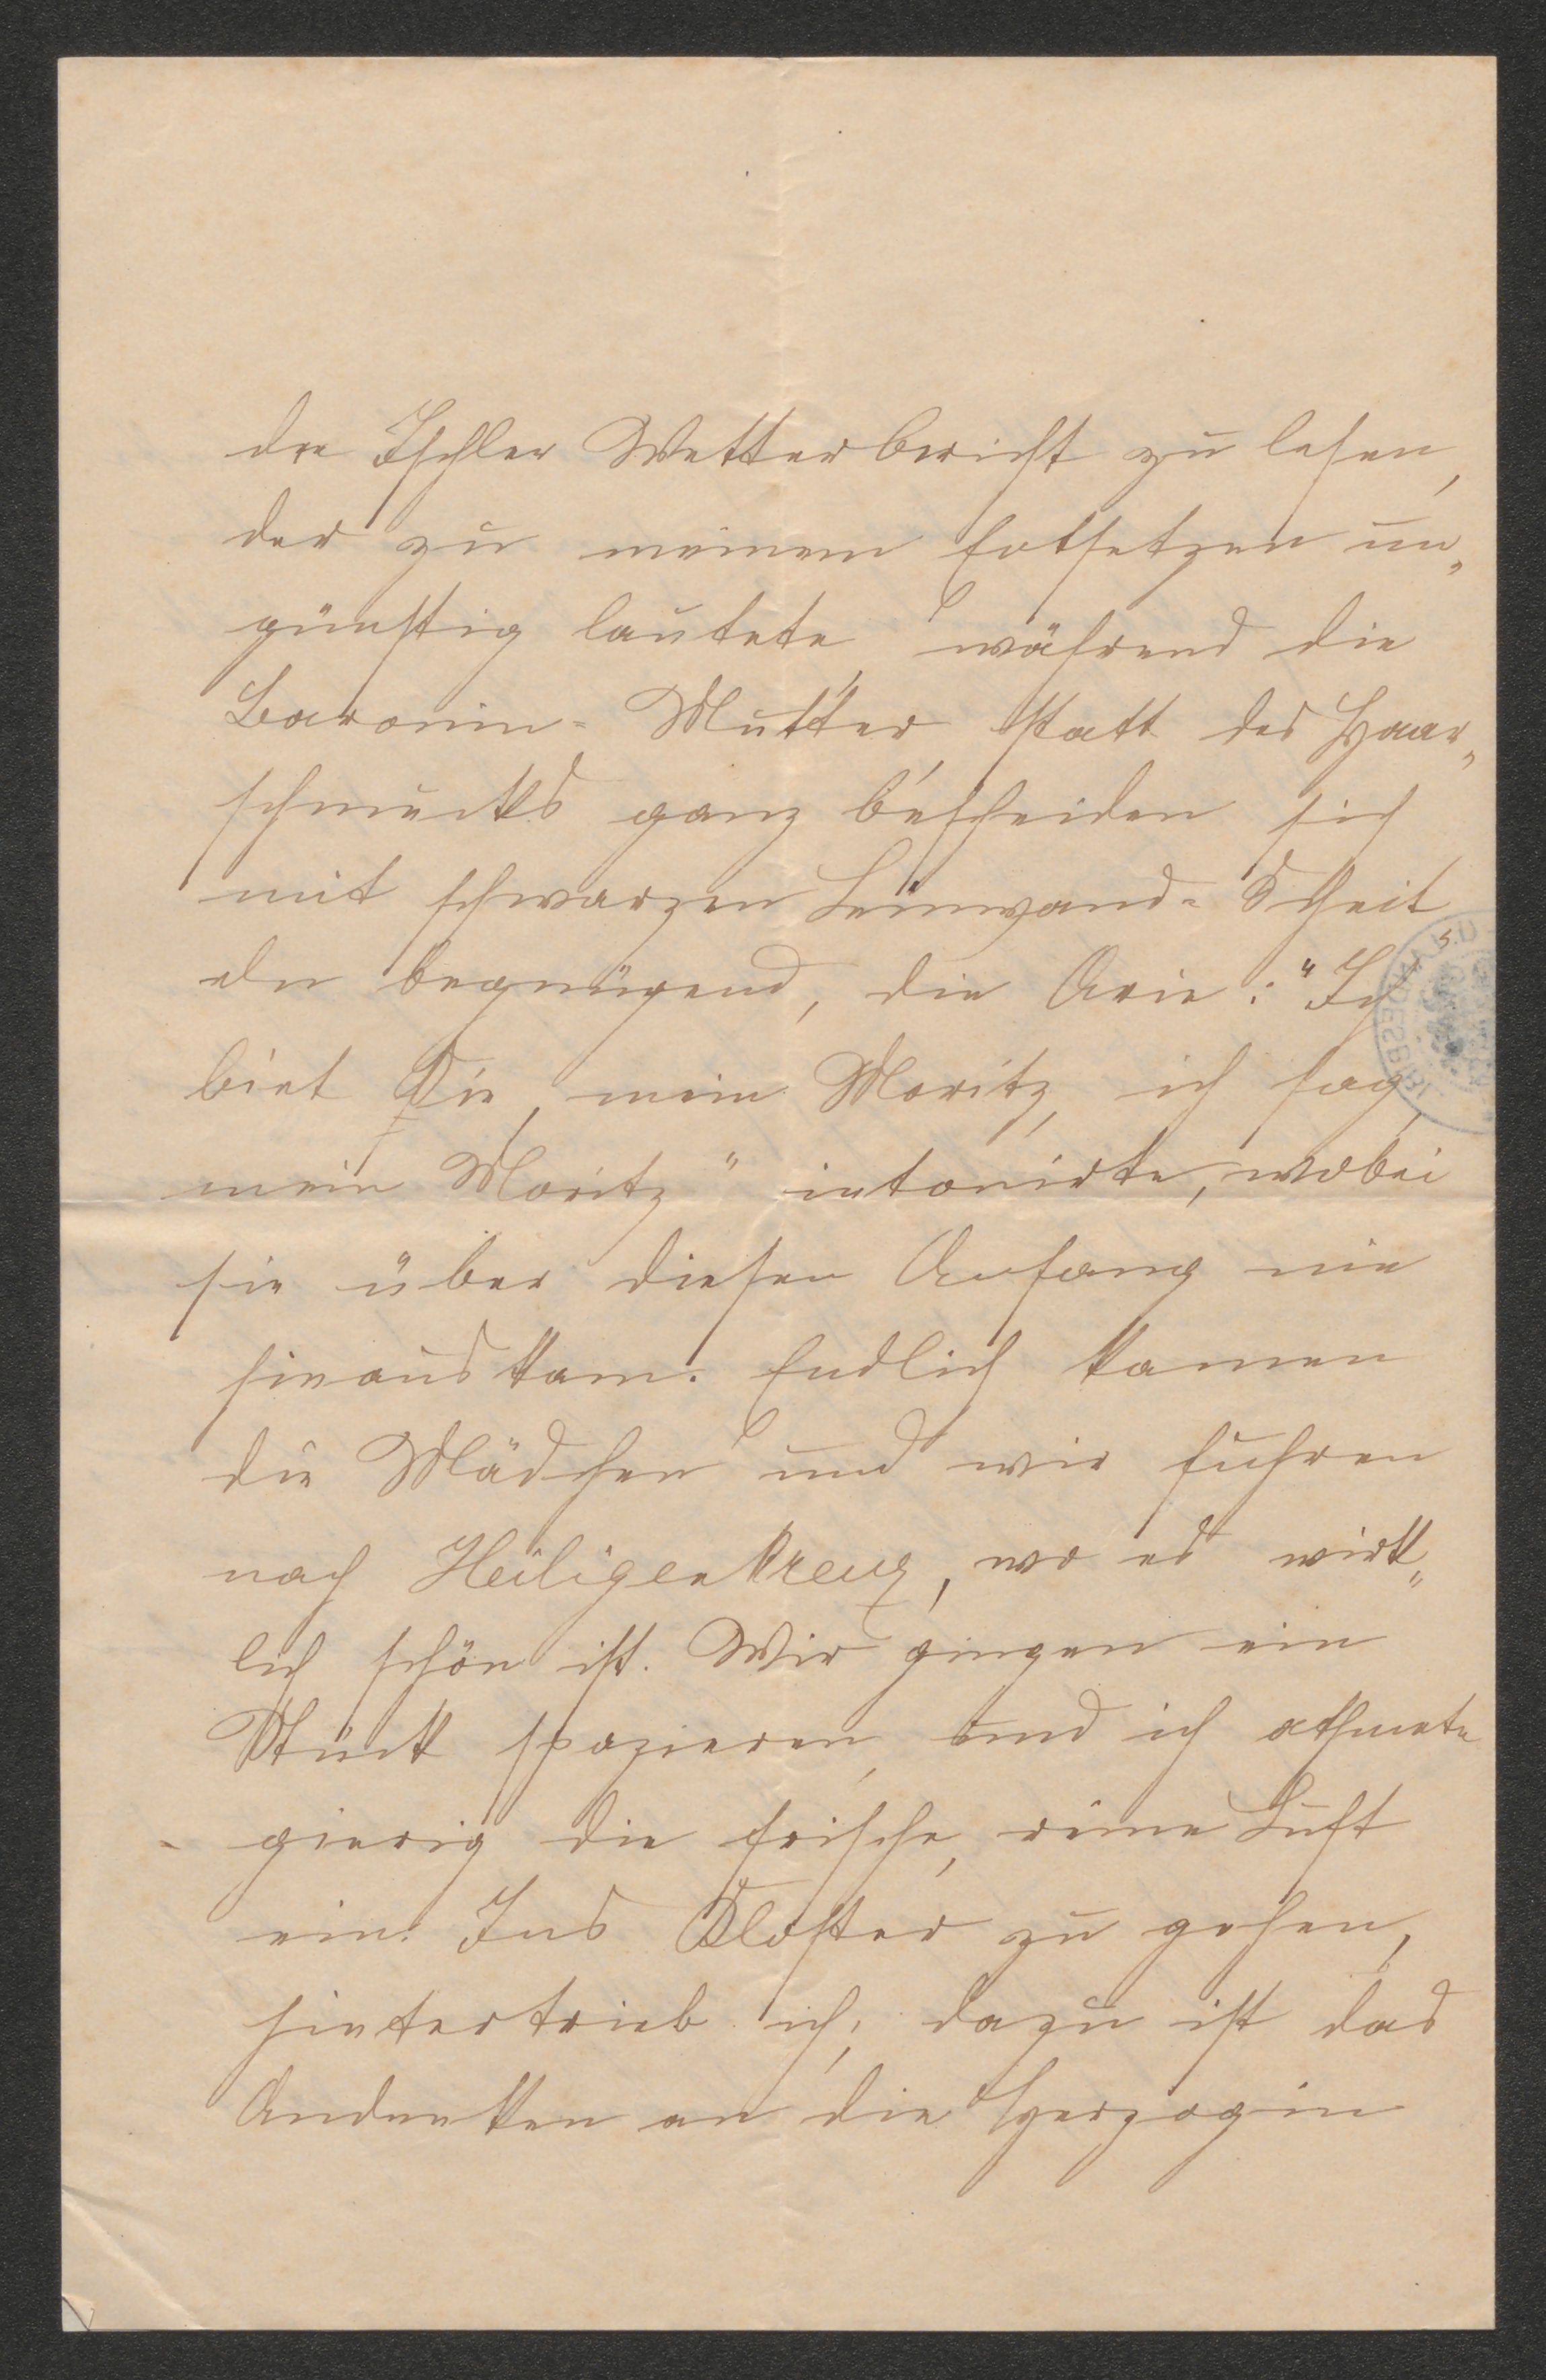 den Ischler Wetterbericht zu lesen,
der zu meinem Entsetzen un„
günstig lautete, während die
Baronin-Mutter, statt des Haar„
schmucks ganz bescheiden sich
mit schwarzen Leinwand-
begnügend, die Arie: "Ich
biet Sie, mein Moritz, ich sag,
mein Moritz" intonirte, wobei
sie über diesen Anfang nie
hinauskam. Endlich kamen
die Mädchen und wir fuhren
nach Heiligenkreuz, wo es wirk„
lich schön ist. Wir gingen ein
Stück spazieren, und ich athmete
gierig die frische, reine Luft
ein. Ins Kloster zu gehen,
hintertrieb ich; dazu ist das
Andenken an die Herzogin